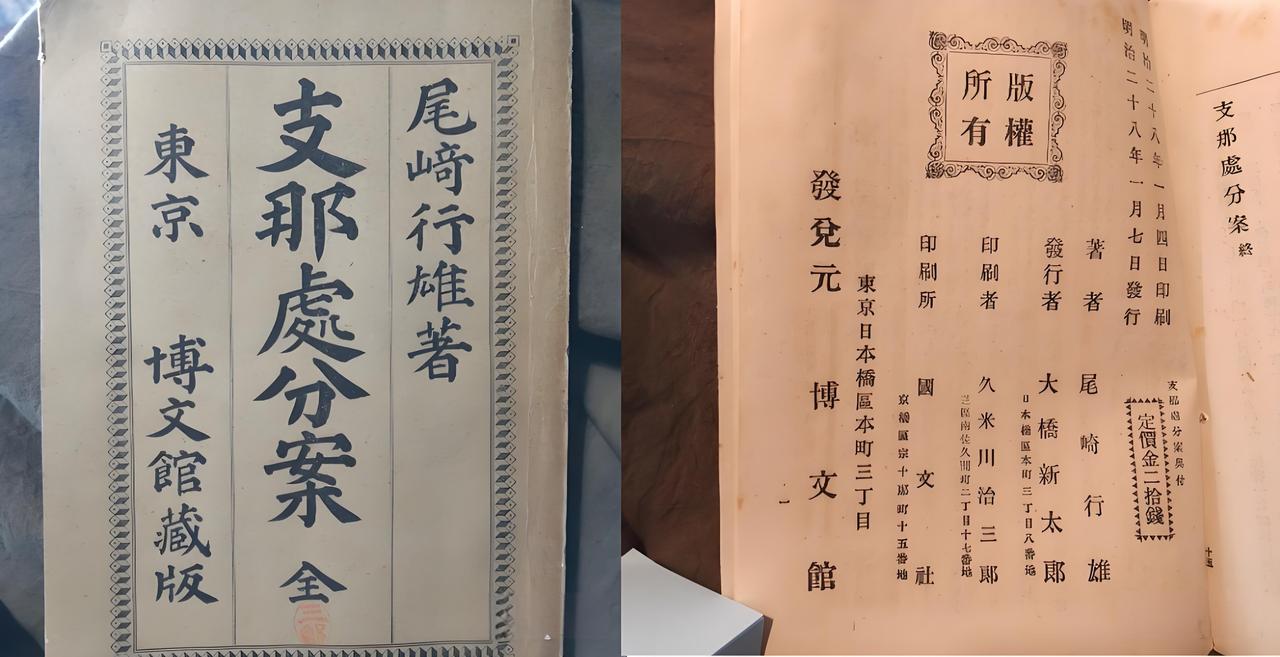 尾崎行雄著
支那處分案 全
東京 博文館藏版
支那處分案 終
明治二十八年一月四日印刷
明治二十八年一月七日發行
版權所有
支那處分案奧付
定價金二拾錢
著者 尾崎行雄
發行者 大橋新太郎
日本橋區本町三丁目八番地
印刷者 久米川治三郎
芝區南佐久間町二丁目十七番地
印刷所 國文社
京橋區宗十郎町十五番地
東京日本橋區本町三丁目
發兌元 博文館
一